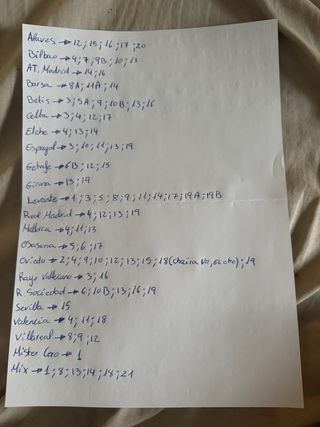 Alaves → 12; 15; 16; 17; 20
Bilbao → 4; 7; 9B; 10; 15
AT. Madrid → 14; 16
Barsa → 8A; 11A; 14
Betis → 3; 5A; 9; 10B; 13; 16
Celta → 3; 4; 12; 17
Elche → 4; 13; 14
Espanyol → 3; 10; 11; 13; 19
Getafe → 6B; 12; 15
Girona → 13; 19
Levante → 1; 3; 5; 8; 9; 11; 14; 17; 19A; 19B
Real Madrid → 4; 12; 13; 19
Mallorca → 4; 11; 13
Osasuna → 5; 6; 17
Oviedo → 2; 4; 9; 10; 12; 13; 15; 18 (chaira NO, el otro); 19
Rayo Vallecano → 3; 16
R Sociedad → 6; 10B; 13; 16; 19
Sevilla → 15
Valencia → 4; 11; 18
Villareal → 8; 9; 12
Mister Cero → 1
Mix → 1; 8; 13; 14; 18; 21